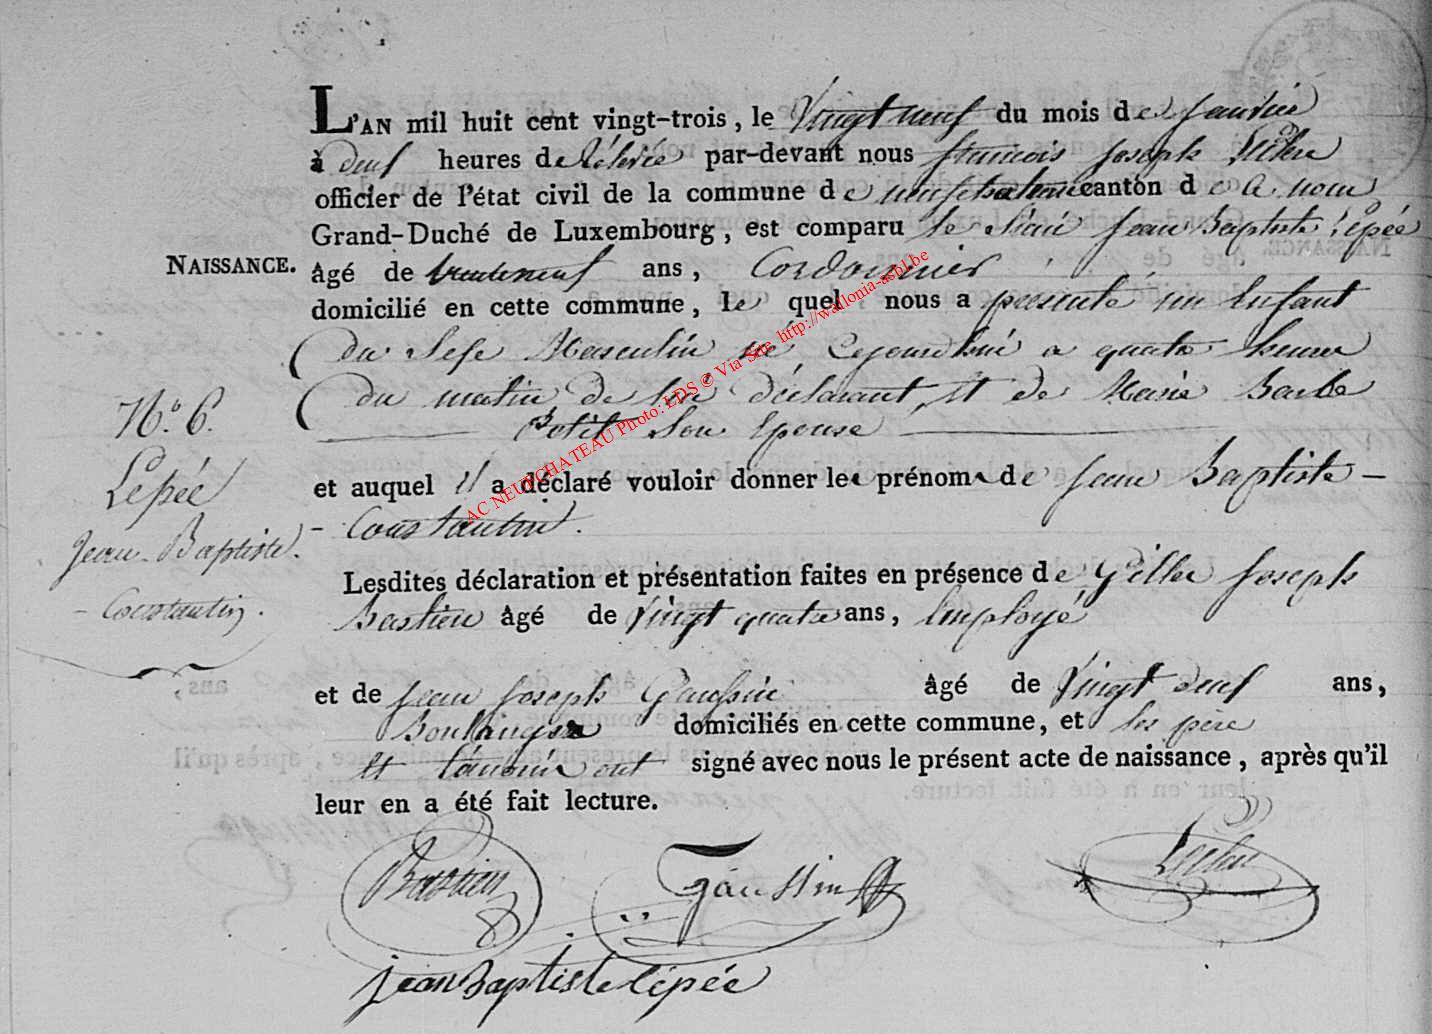 L'AN mil huit cent vingt-trois, le Vingt neuf du mois de Janvier
à deux heures de Relevée par-devant nous françois Joseph
officier de l'état civil de la commune de neufchateau canton de a nom
Grand-Duché de Luxembourg, est comparu le Sieur Jean Baptiste Lepée
NAISSANCE.
âgé de trenteneuf ans, Cordonnier
domicilié en cette commune, lequel nous a presenté un Enfant
du Sexe Masculin né Cejourdhui a quatre heures
du matin de lui déclarant, Et de Marie Barbe
Petit Son Epouse
et auquel il a déclaré vouloir donner les prénoms de Jean Baptiste -
- Constantin.
N.o 6.
Lepée
Jean-Baptiste.
- Constantin.
Lesdites déclaration et présentation faites en présence de Gilles Joseph
Bastien âgé de Vingt quatre ans, Employé
et de Jean Joseph Gaussin âgé de Vingt deux ans,
Boulanger domiciliés en cette commune, et les père
et témoins ont signé avec nous le présent acte de naissance, après qu'il
leur en a été fait lecture.
Bastien
Gaussin
Jean Baptiste lépée
AC NEUFCHATEAU Photo: LDS © Via Site http://wallonia-asbl.be